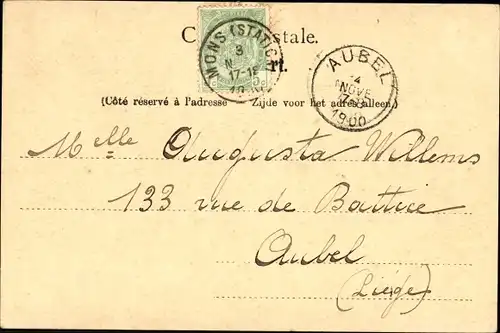 MONS (STATION)
3
17-18
AUBEL
4
NOVE
1900
(Côté réservé à l'adresse — Zijde voor het adres alleen)
Melle Augusta Willems
133 rue de Battice
Aubel
(Liége)